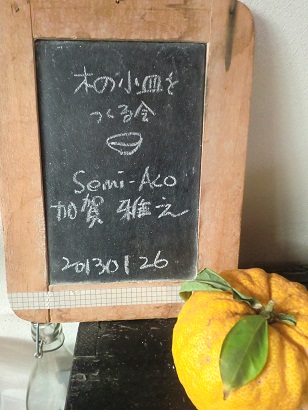 木の小皿を
つくる会
Semi-Aco
加賀 雅之
20130126